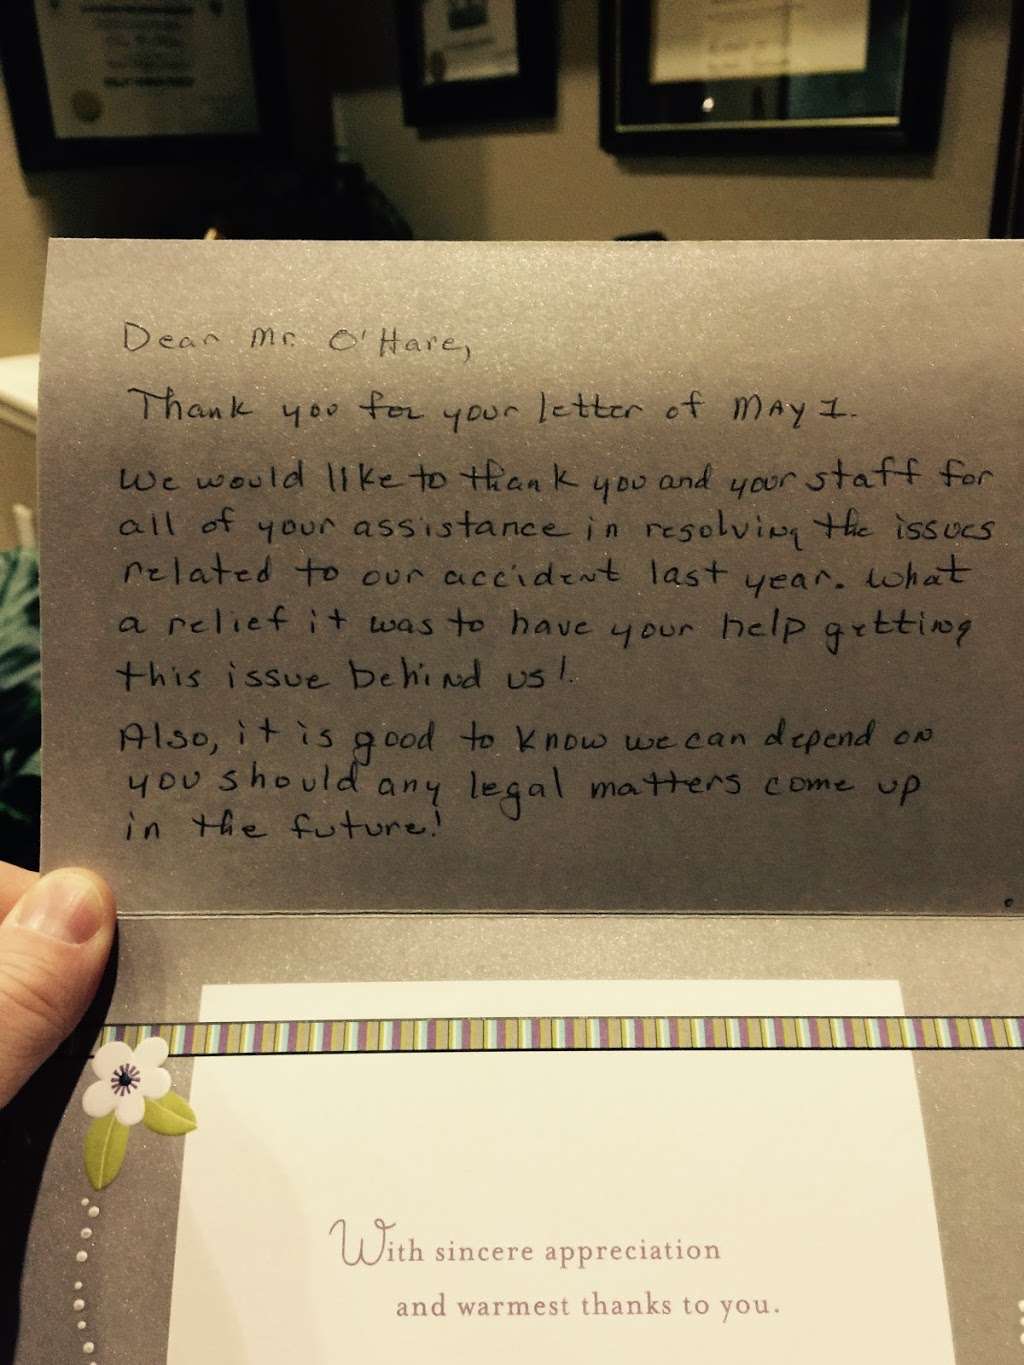 Dear Mr. O'Hare,
Thank you for your letter of MAY 1.
We would like to thank you and your staff for
all of your assistance in resolving the issues
related to our accident last year. What
a relief it was to have your help getting
this issue behind us!
Also, it is good to know we can depend on
you should any legal matters come up
in the future!
With sincere appreciation
and warmest thanks to you.